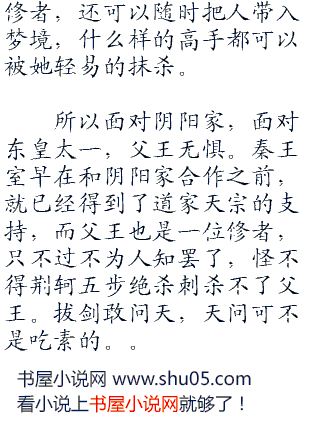 修者，还可以随时把人带入
梦境，什么样的高手都可以
被她轻易的抹杀。
所以面对阴阳家，面对
东皇太一，父王无惧。秦王
室早在和阴阳家合作之前，
就已经得到了道家天宗的支
持，而父王也是一位修者，
只不过不为人知罢了，怪不
得荆轲五步绝杀刺杀不了父
王。拔剑敢问天，天问可不
是吃素的。。
书屋小说网 www.shu05.com
看小说上书屋小说网就够了！